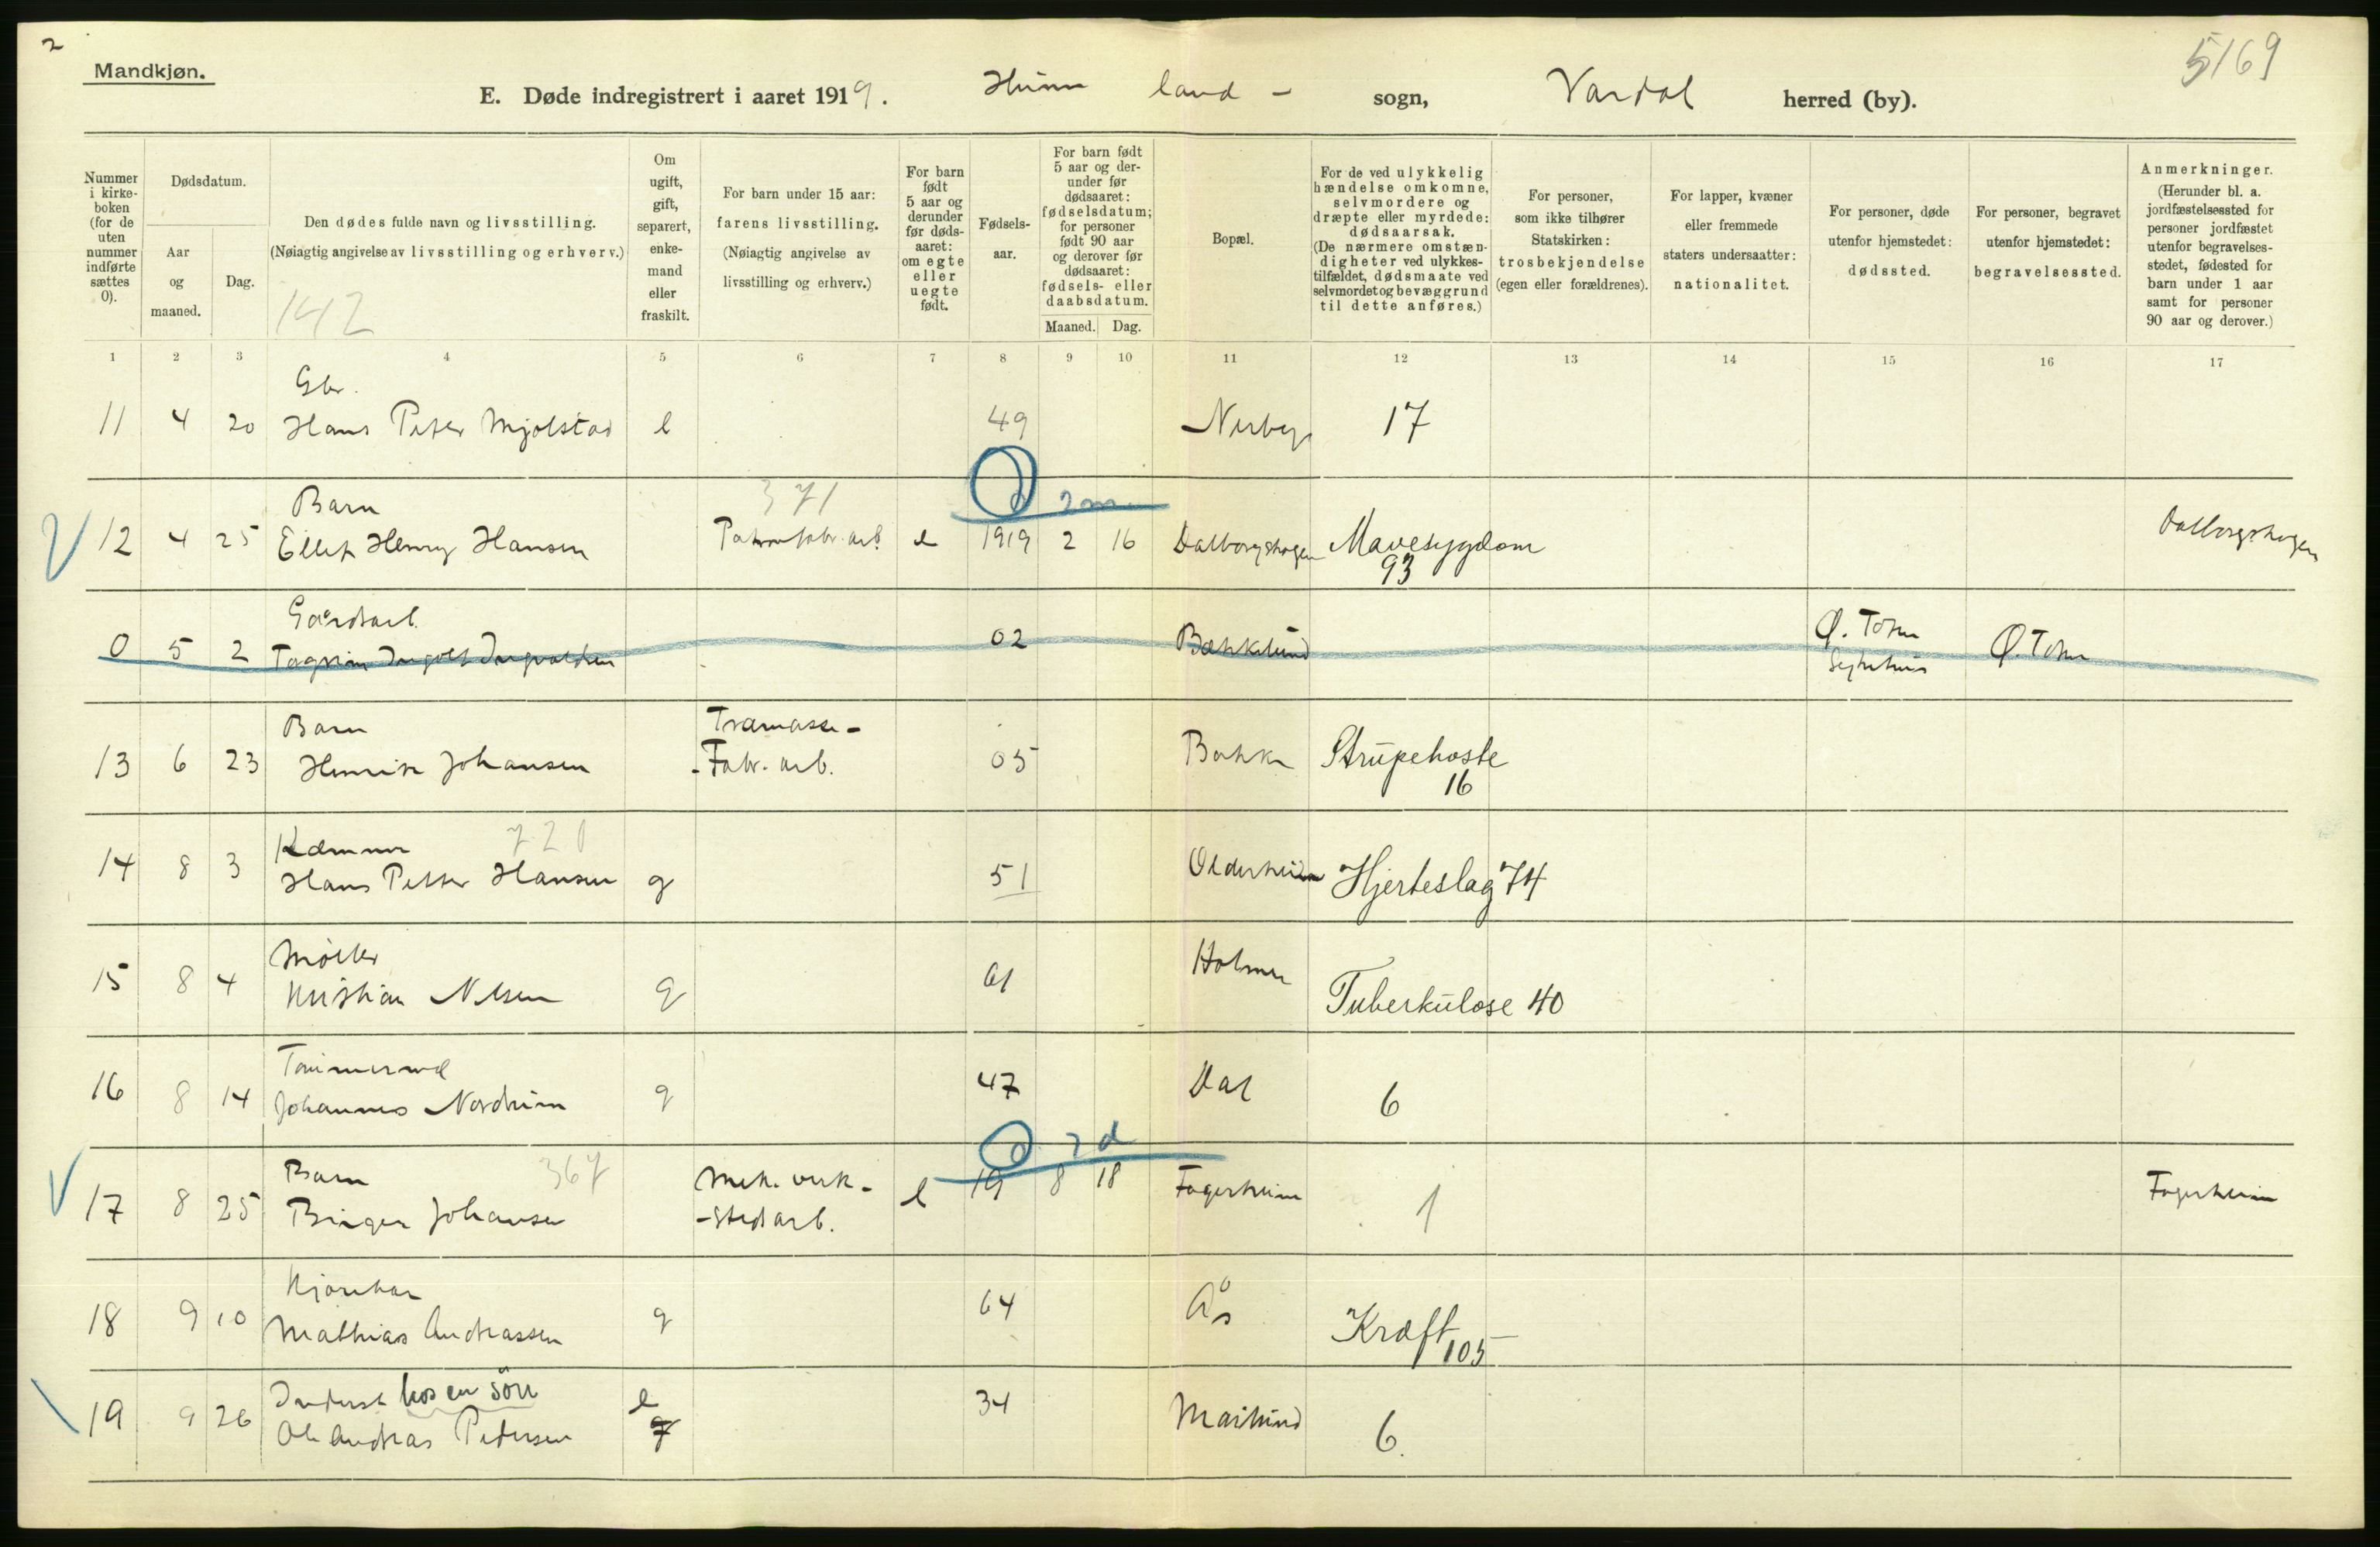 2
Mandkjøn.
5169
E. Døde indregistrert i aaret 1919. Hunn land - sogn, Vardal herred (by).
Nummer i kirkeboken (for de uten nummer indførte sættes 0).
Dødsdatum.
Aar og maaned.
Dag.
Den dødes fulde navn og livsstilling.
(Nøiagtig angivelse av livsstilling og erhverv.)
142
Om ugift, gift, separert, enkemand eller fraskilt.
For barn under 15 aar: farens livsstilling.
(Nøiagtig angivelse av livsstilling og erhverv.)
For barn født 5 aar og derunder før dødsaaret: om egte eller uegte født.
Fødselsaar.
For barn født 5 aar og derunder før dødsaaret: fødselsdatum; for personer født 90 aar og derover før dødsaaret: fødsels- eller daabsdatum.
Maaned. Dag.
Bopæl.
For de ved ulykkelig hændelse omkomne, selvmordere og dræpte eller myrdede: dødsaarsak.
(De nærmere omstændigheter ved ulykkestilfældet, dødsmaate ved selvmordet og bevæggrund til dette anføres.)
For personer, som ikke tilhører Statskirken: trosbekjendelse (egen eller forældrenes).
For lapper, kvæner eller fremmede staters undersaatter: nationalitet.
For personer, døde utenfor hjemstedet: dødssted.
For personer, begravet utenfor hjemstedet: begravelsessted.
Anmerkninger.
(Herunder bl. a. jordfæstelsessted for personer jordfæstet utenfor begravelsesstedet, fødested for barn under 1 aar samt for personer 90 aar og derover.)
1 2 3 4 5 6 7 8 9 10 11 12 13 14 15 16 17
Gbr.
11 4 20 Hans Peter Mjølstad e 49 Nerbye 17
Barn 371 2 m
12 4 25 Ellef Henry Hansen fabr. arb. e 1919 2 16 Dalborgshagen Mavesygdom 93 Dalborgshagen
Gårdsarb. Ø. Toten
0 5 2 Ingolf Ingvaldsen 02 Bækkelund Sykehus Ø. Toten
Barn Træmasse-
13 6 23 Henrik Johansen -Fabr. arb. 05 Bakke Strupehoste 16
720
14 8 3 Hans Petter Hansen g 51 Olderheim Hjerteslag 74
Møller
15 8 4 Kristian Nilsen g 61 Holmen Tuberkulose 40
Tømmermd
16 8 14 Johannes Nordheim g 47 Dal 6
Barn 367 Mek. verk- 7 d
17 8 25 Birger Johansen -stedarb. e 19 8 18 Fagerheim 1 Fagerheim
18 9 10 Mathias Andreassen g 64 Ås Kræft 105
Inderst hos en søn e
19 9 26 Ole Andreas Pedersen g 34 Marilund 6.